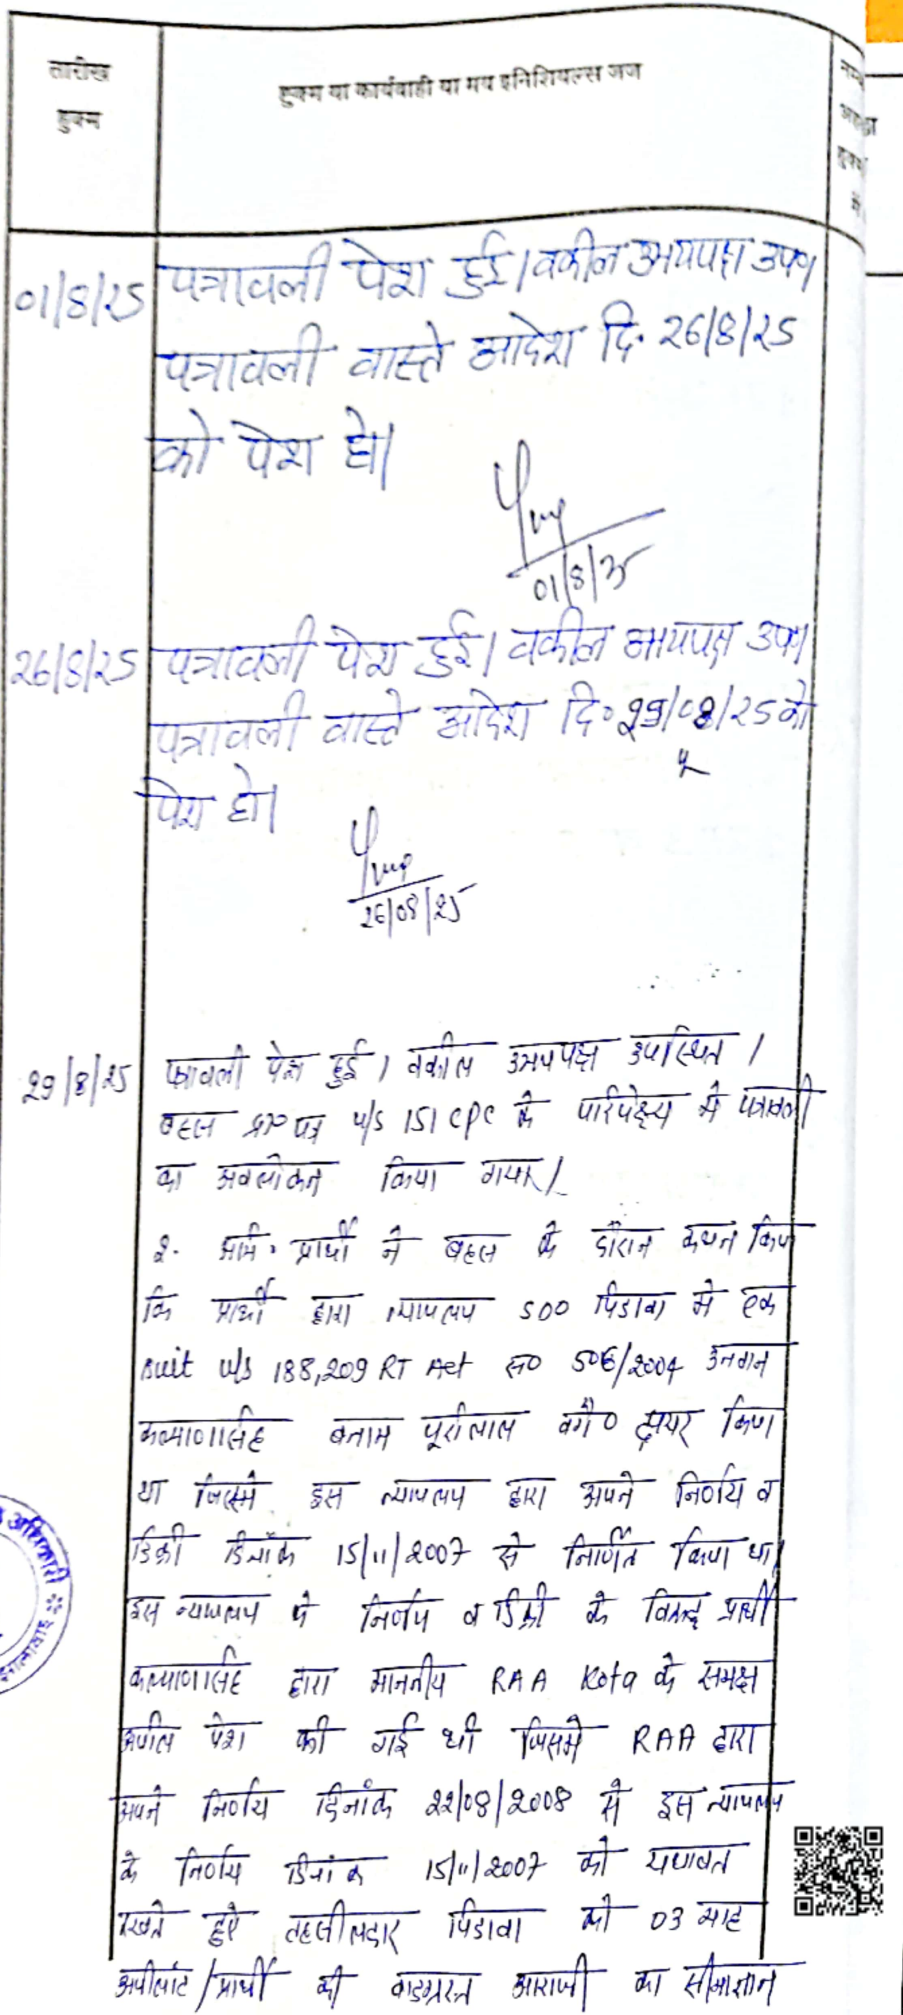 तारीख
हुक्म
हुक्म या कार्यवाही या मय इनिशियल्स जज
01/8/25 पत्रावली पेश हुई। वकील उभयपक्ष उप०।
पत्रावली वास्ते आदेश दि. 26/8/25
को पेश हो।
01/8/25
26/8/25 पत्रावली पेश हुई। वकील उभयपक्ष उप०।
पत्रावली वास्ते आदेश दि० 29/08/25 को
पेश हो।
26/08/25
29/8/25 पत्रावली पेश हुई। वकील उभयपक्ष उपस्थित।
बहस प्रा० पत्र u/s 151 cpc के परिपेक्ष्य मे पत्रावली
का अवलोकन किया गया।
2. अभि. प्रार्थी ने बहस के दौरान कथन किया
कि प्रार्थी द्वारा न्यायलय SDO पिडावा मे एक
suit u/s 188,209 RT Act स० 506/2004 उनवान
कल्याणसिंह बनाम पूरीलाल वगै० दायर किया
था जिसमे इस न्यायलय द्वारा अपने निर्णय व
डिक्री दिनाँक 15/11/2007 से निर्णित किया था।
इस न्यायलय के निर्णय व डिक्री के विरूद्ध प्रार्थी
कल्याणसिंह द्वारा माननीय RAA Kota के समक्ष
अपील पेश की गई थी जिसमे RAA द्वारा
अपने निर्णय दिनांक 22/08/2008 से इस न्यायलय
के निर्णय दिनांक 15/11/2007 को यथावत
रखते हुऐ तहसीलदार पिडावा को 03 माह
अपीलांट/प्रार्थी की वादग्रस्त आराजी का सीमाज्ञान
अधिकारी